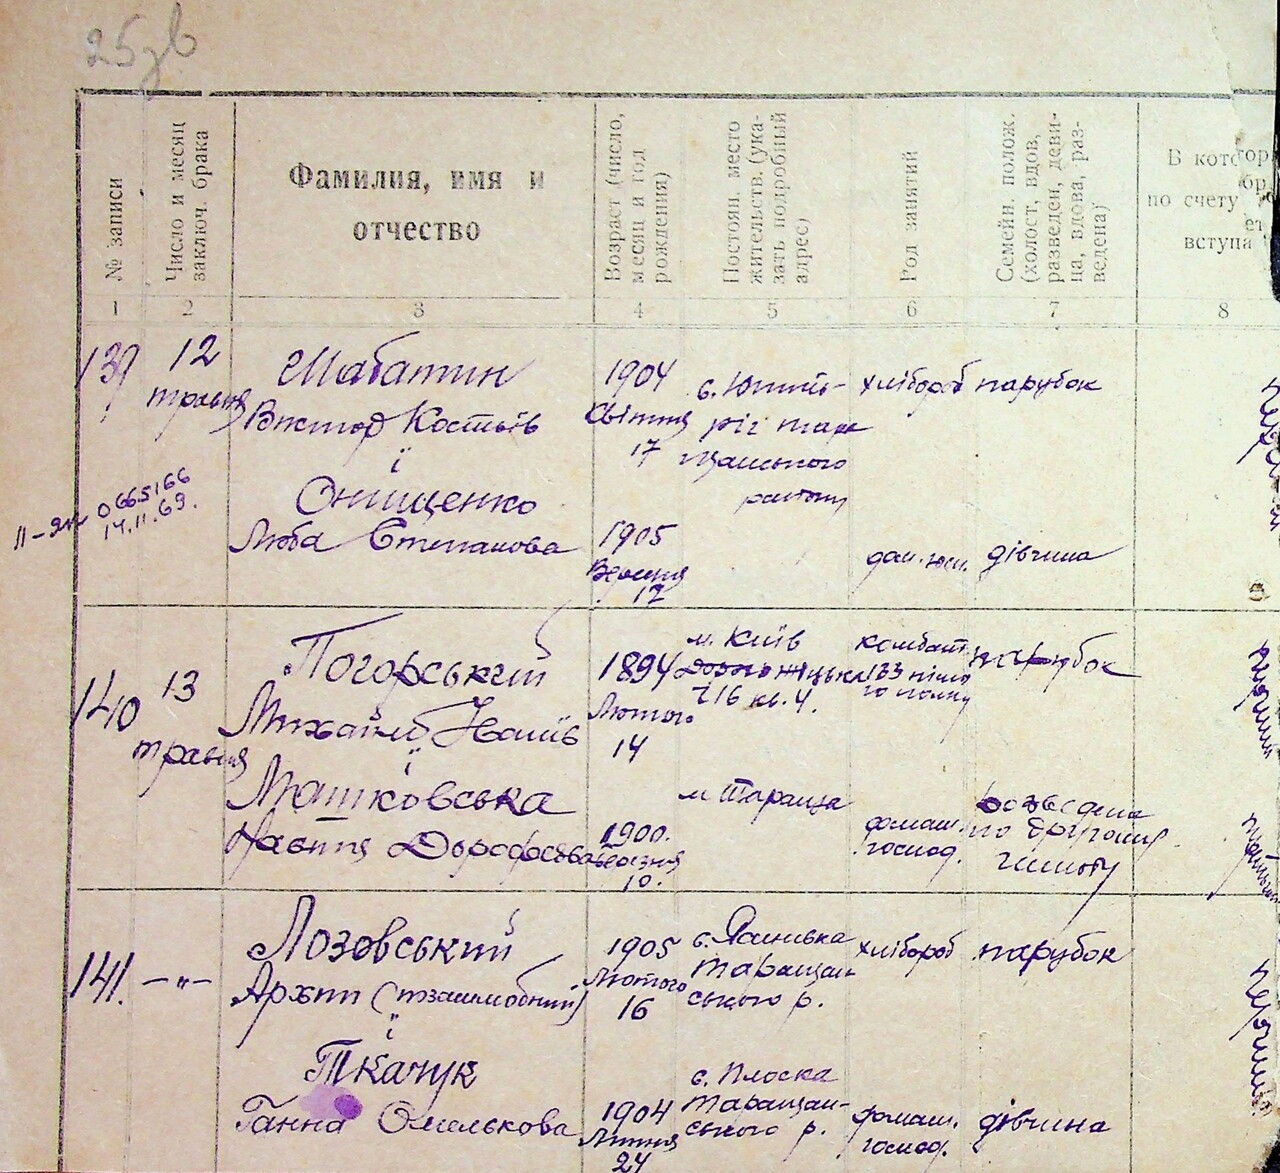 25зв
№ записи
Число и месяц
заключ. брака
Фамилия, имя и
отчество
Возраст (число,
месяц и год
рождения)
Постоян. место
жительств. (ука-
зать подробный
адрес)
Род занятий
Семейн. полож.
(холост, вдов,
разведен, деви-
ца, вдова, раз-
ведена)
В котор
по счету
вступа
1
2
3
4
5
6
7
8
139
12
травня
Шабатин
Виктор Костьїв
і
Онищенко
Люба Степанова
1904
Квітня
17
1905
Вересня
17
с.
ріг Тара
щанського
району
хлібороб
парубок
дом. госп.
дівчина
II-ЯК 0665166
14.11.69.
140
13
травня
Погорський
Михайло
і
Машковська
Дорофєєва
1894
Лютого
14
1900.
березня
10.
м. Київ
116 кв. 4.
м Тараща
комбат
133 піхо
го полку
парубок
домаш.
господ.
розведена
по другому
шлюбу
141.
—"—
Лозовський
Архип (позашлюбний)
і
Ткачук
Ганна Омелькова
1905
Лютого
16
1904
Липня
24
с. Ясинівка
Таращан-
ського р.
с. Плоска
Таращан-
ського р.
хлібороб
парубок
домаш.
господ.
дівчина